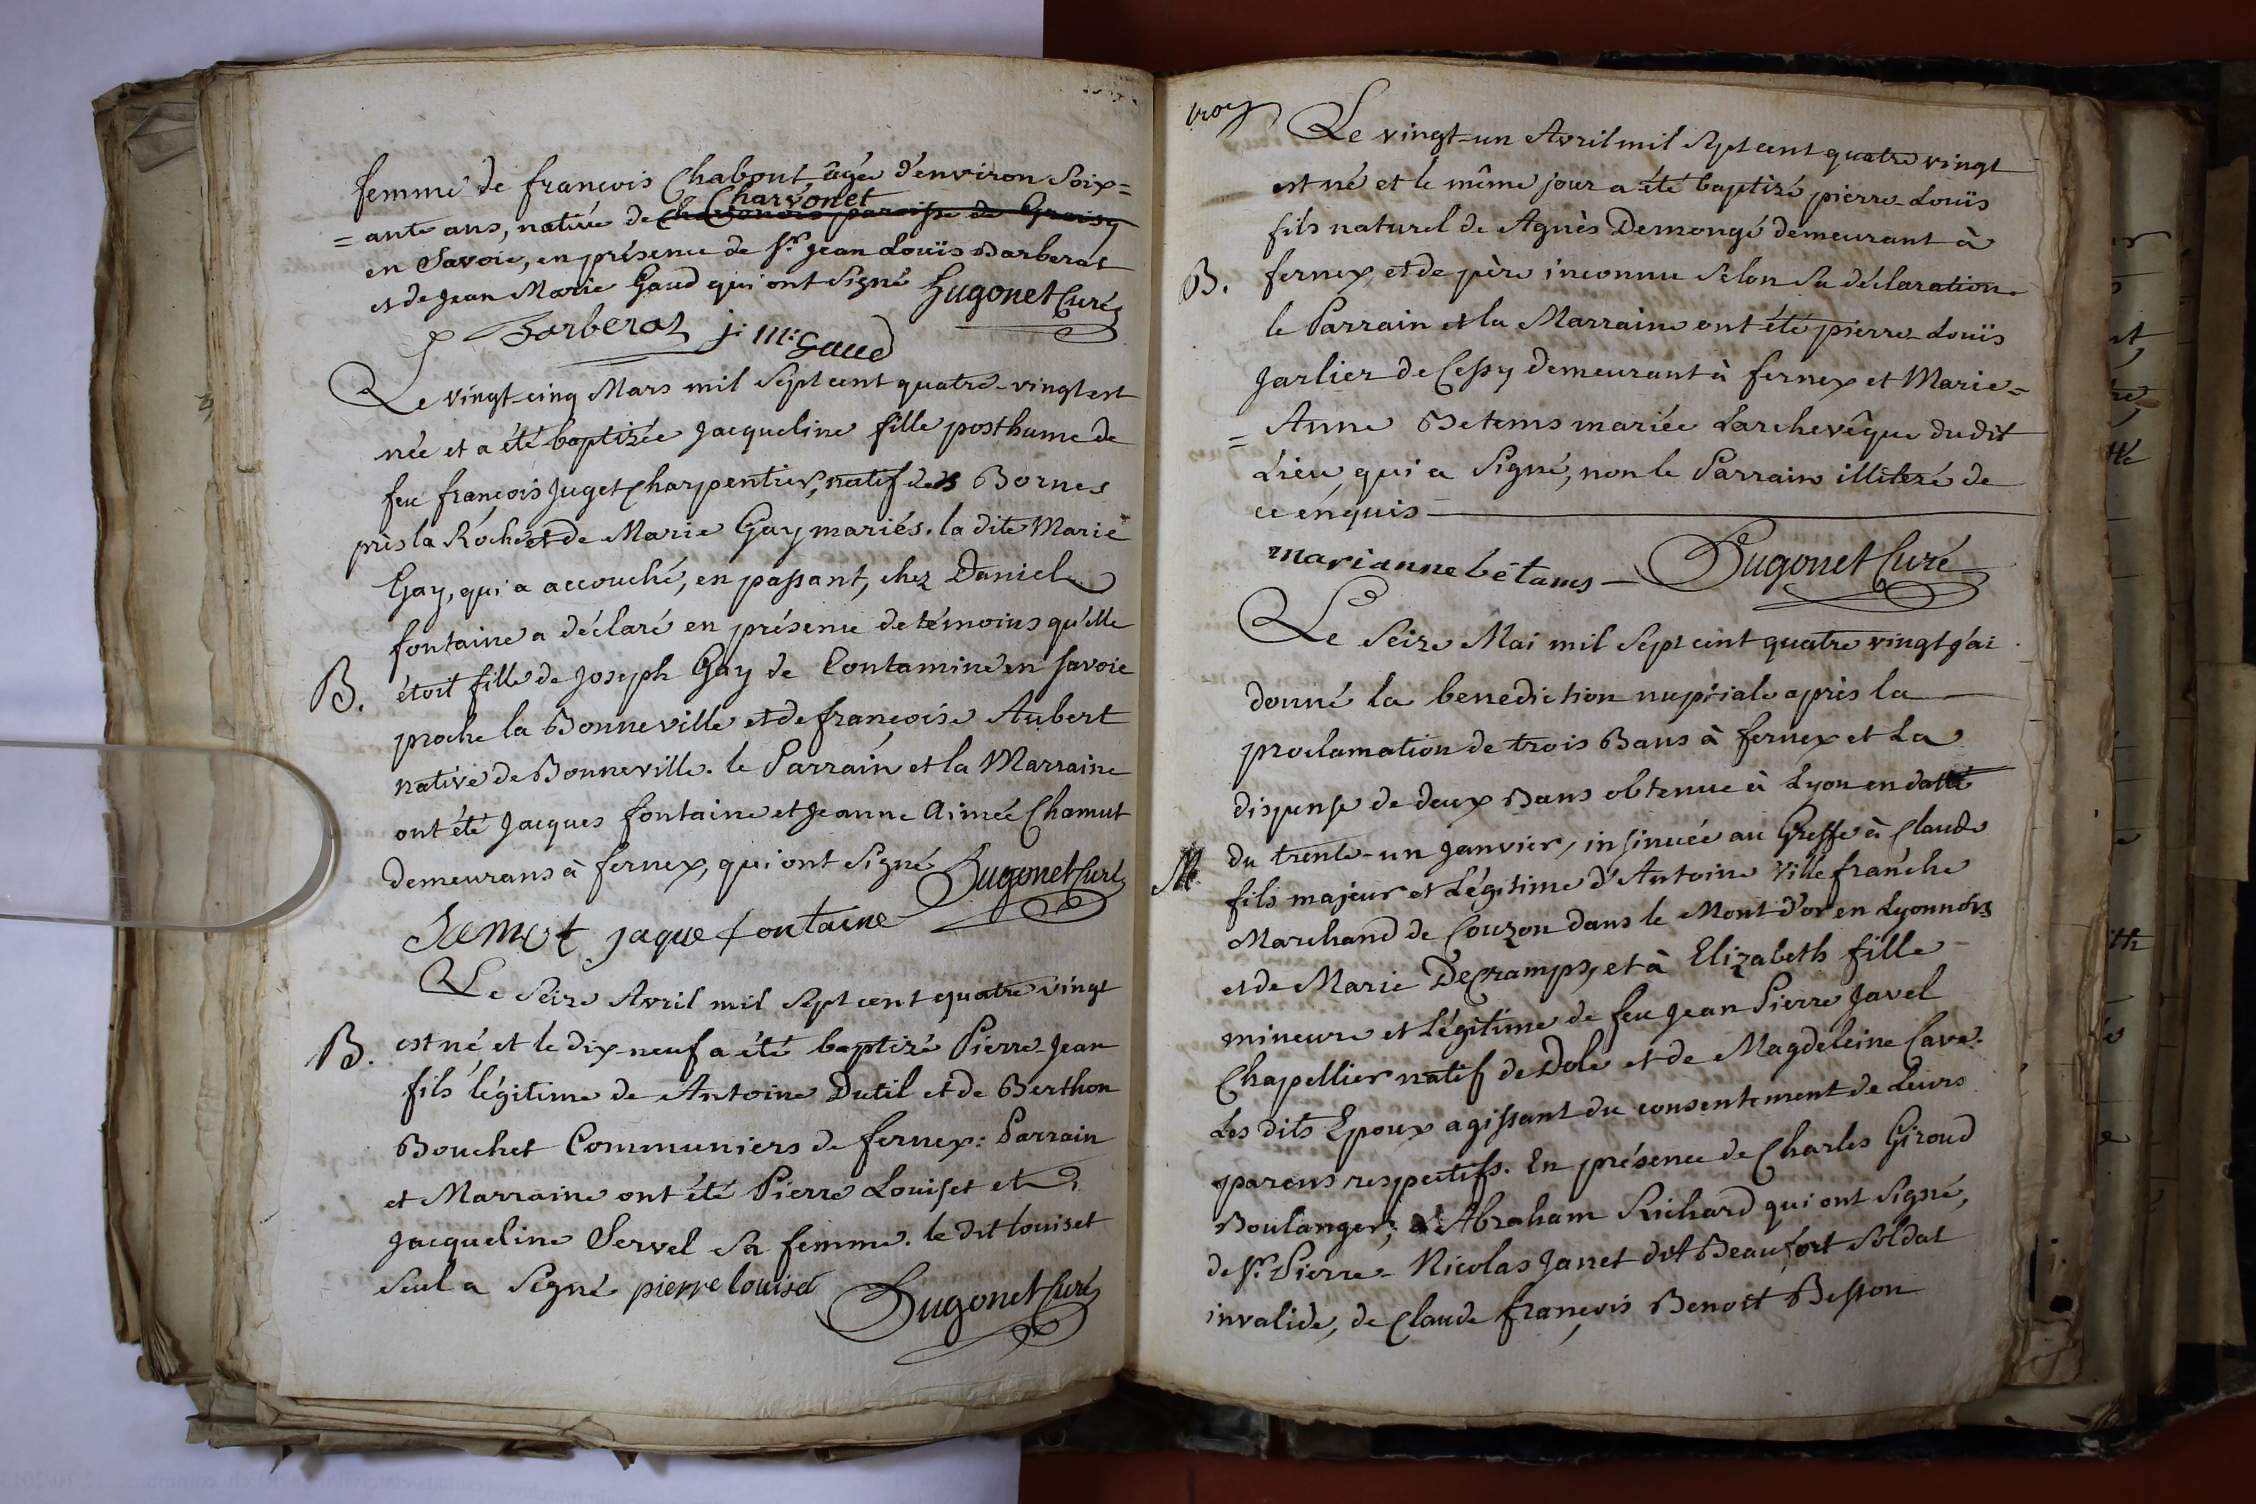 femme de françois Chabout âgée d'environ Soix=
Charvonet
= ante ans, native de Chavonois paroisse de Groisy
en Savoie, en présence de Sr. Jean Louïs Barberat
et de Jean Marie Gaud qui ont Signé Hugonet Curé
Barberat j: M: Gaud
Le vingt-cinq Mars mil Sept cent quatre-vingt est
née et a été baptizée Jacqueline fille posthume de
feu françois Juget Charpentier, natif des Bornes
près la Roche et de Marie Gay mariés. la dite Marie
Gay, qui a accouché, en passant, chez Daniel
fontaine a déclaré en présence de témoins qu'elle
B. étoit fille de Joseph Gay de Contamine en Savoie
proche la Bonneville et de françoise Aubert
native de Bonneville. le Parrain et la Marraine
ont été Jacques fontaine et Jeanne Aimée Chamut
demeurans à fernex, qui ont Signé Hugonet Curé
jaque fontaine
Le Seize Avril mil Sept cent quatre vingt
B. est né et le dix-neuf a été baptizé Pierre-Jean
fils légitime de Antoine Dutil et de Berthon
Bouchet Communiers de fernex: Parrain
et Marraine ont été Pierre Louiset et
Jacqueline Servel Sa femme. le dit louiset
Seul a Signé pierre louiset Hugonet Curé
Le vingt-un Avril mil Sept cent quatre vingt
est né et le même jour a été baptizé pierre-Louïs
fils naturel de Agnès Demongé demeurant à
B. fernex, et de père inconnu Selon Sa déclaration.
le Parrain et la Marraine ont été pierre-Louïs
Jarlier de Cessy demeurant à fernex et Marie=
= Anne Betems mariée Larchevêque du dit
Lieu, qui a Signé, non le Parrain illiteré de
ce énquis
marianne bétams Hugonet Curé
Le Seize Mai mil Sept cent quatre vingt j'ai
donné la benediction nuptiale après la
proclamation de trois Bans à fernex et La
dispense de deux Bans obtenue à Lyon en datte
du trente-un Janvier, insinuée au Greffe à Claude
M. fils majeur et Légitime d'Antoine Villefranche
Marchand de Couzon dans le Mont d'or en Lyonnois
et de Marie Decramps, et à Elizabeth fille
mineure et Légitime de feu Jean Pierre Javel
Chapellier natif de Dole et de Magdeleine Cave.
Les dits Epoux agissant du consentement de Leurs
parens respectifs. En présence de Charles Giroud
Boulanger, d'Abraham Richard qui ont Signé,
de Sr. Pierre-Nicolas Janet dit Beaufort Soldat
invalide, de Claude françois Benoit Besson